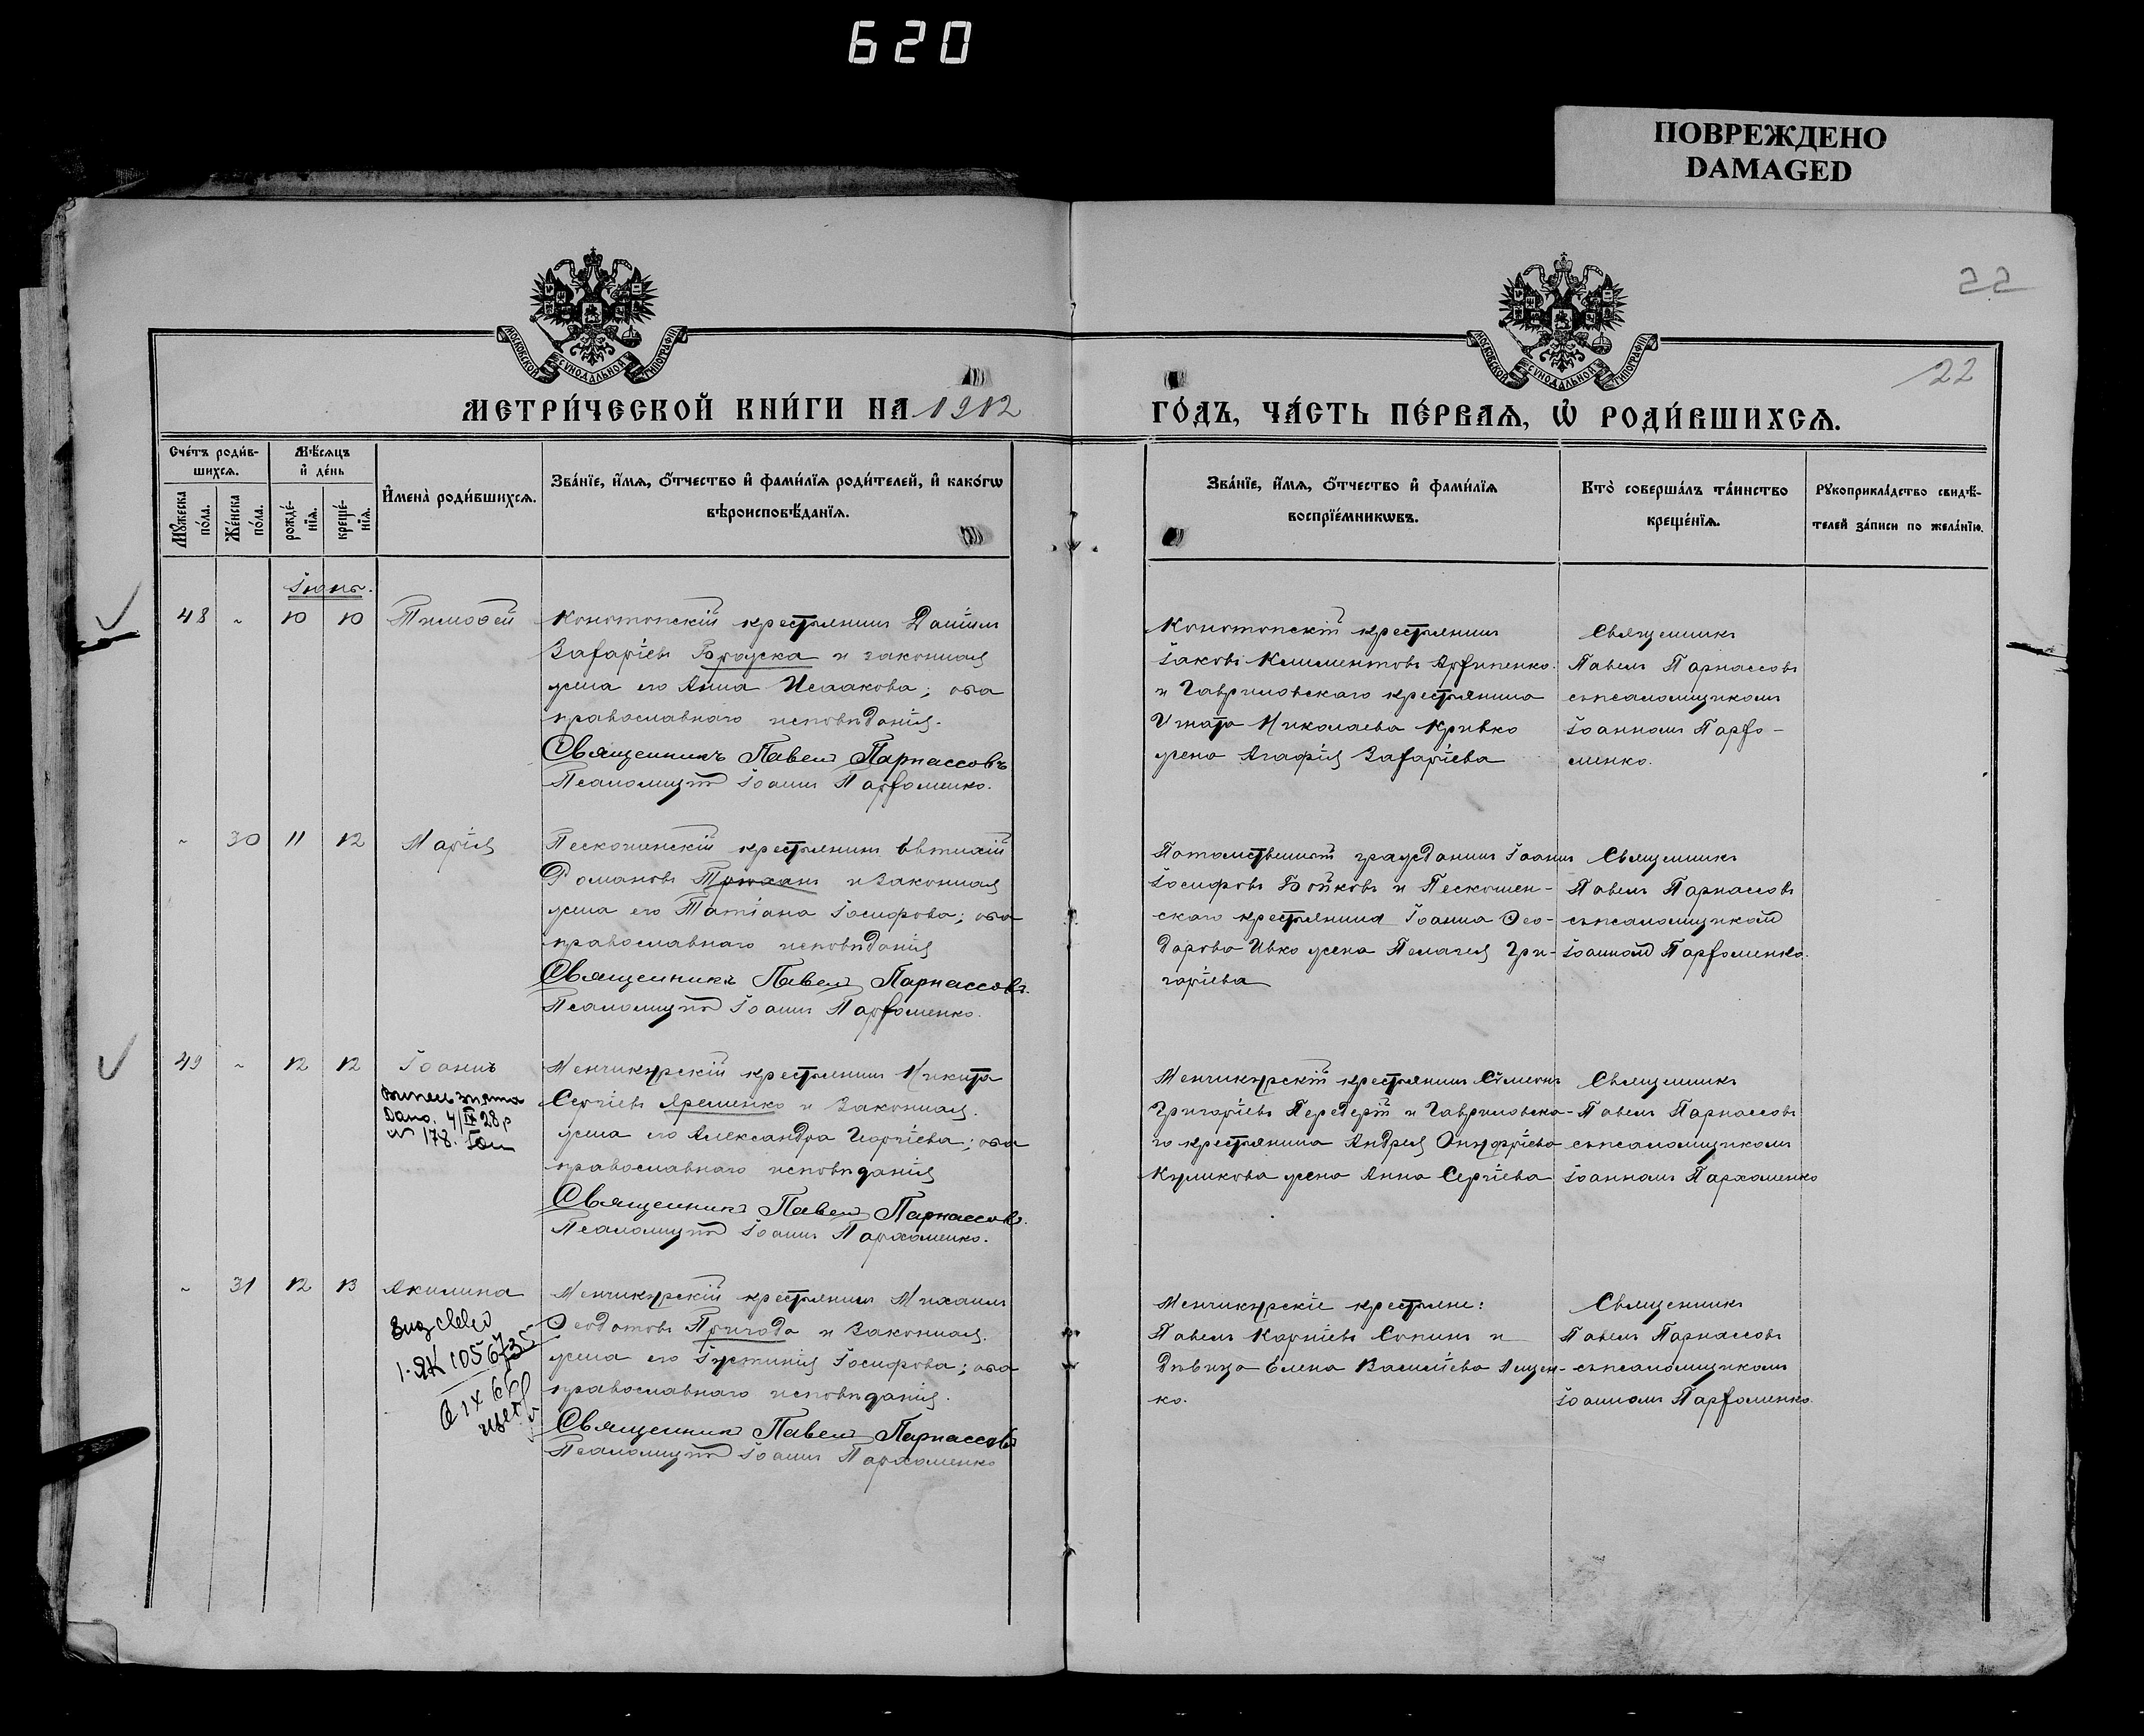 620
ПОВРЕЖДЕНО
DAMAGED
22
22
МОСКОВСКОЙ СУНОДАЛЬНОЙ ТИПОГРАФІИ
МОСКОВСКОЙ СУНОДАЛЬНОЙ ТИПОГРАФІИ
МЕТРИ́ЧЕСКОЙ КНИ́ГИ НА 1912
ГО́ДЪ, ЧА́СТЬ ПЕ́РВАѦ, Ѡ҆ РОДИ́ВШИХСѦ.
Сче́тъ роди́в-
шихсѧ.
Мꙋ́жеска по́ла.
Же́нска по́ла.
Мѣ́сѧцъ
и҆ де́нь
рожде́-
нїѧ.
креще́-
нїѧ.
И҆мена̀ роди́вшихсѧ.
Зва́нїе, и҆́мѧ, ѻ҆́тчество и҆ фами́лїѧ роди́телей, и҆ како́гѡ
вѣроисповѣ́данїѧ.
Зва́нїе, и҆́мѧ, ѻ҆́тчество и҆ фами́лїѧ
воспрїе́мникѡвъ.
Кто̀ соверша́лъ та́инство
креще́нїѧ.
Рꙋкоприкла́дство свидѣ́-
телей за́писи по жела́нїю.
Іюнь.
48 ~ 10 10 Тимоѳей
Конотопскій крестьянинъ Даніилъ
Захаріевъ и законная
жена его Анна Исаакова; оба
православнаго исповѣданія.
Священникъ Павелъ Парнассовъ
Псаломщикъ Іоаннъ Пархоменко.
Конотопскій крестьянинъ
Іаковъ Климентовъ Архипенко
и Гавриловскаго крестьянина
Игната Николаева Кривко
жена Агафія Захаріева
Священникъ
Павелъ Парнассовъ
съ псаломщикомъ
Іоанномъ Пархо-
менко.
~ 30 11 12 Марія
крестьянинъ Евтихій
Романовъ Трюханъ и законная
жена его Татіана Іосифова; оба
православнаго исповѣданія
Священникъ Павелъ Парнассовъ.
Псаломщикъ Іоаннъ Пархоменко.
Потомственный гражданинъ Іоаннъ
Іосифовъ Бойковъ и Пескошен-
скаго крестьянина Іоанна Ѳео-
дорова Ивко жена Пелагея Гри-
горіева
Священникъ
Павелъ Парнассовъ
съ псаломщикомъ
Іоанномъ Пархоменко.
49 ~ 12 12 Іоаннъ
Дано. 4/IX 28 р
№ 178.
Менчикурскій крестьянинъ Никита
Сергіевъ Яременко и законная
жена его Александра Георгіева; оба
православнаго исповѣданія
Священникъ Павелъ Парнассовъ.
Псаломщикъ Іоаннъ Пархоменко.
Менчикурскій крестьянинъ Сѵмеонъ
Григоріевъ Передерій и Гавриловска-
го крестьянина Андрея Онуфріева
Куликова жена Анна Сергіева
Священникъ
Павелъ Парнассовъ
съ псаломщикомъ
Іоанномъ Пархоменко
~ 31 12 13 Акилина
1-ЯК 105673
Менчикурскій крестьянинъ Михаилъ
Ѳеодотовъ Пригода и законная
жена его Іустинія Іосифова; оба
православнаго исповѣданія.
Священникъ Павелъ Парнассовъ
Псаломщикъ Іоаннъ Пархоменко
Менчикурскіе крестьяне:
Павелъ Карпіевъ Сопинъ и
дѣвица Елена Василіева Лещен-
ко.
Священникъ
Павелъ Парнассовъ
съ псаломщикомъ
Іоанномъ Пархоменко.